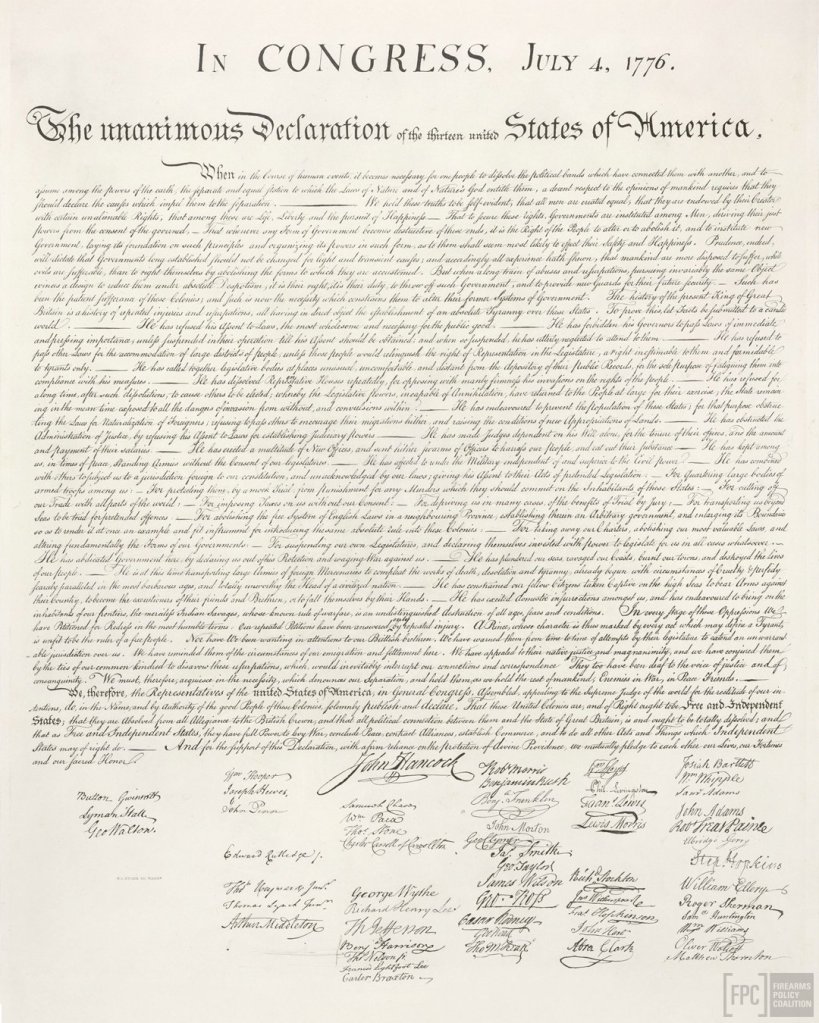 IN CONGRESS, JULY 4, 1776.
The unanimous Declaration of the thirteen united States of America,
When in the Course of human events, it becomes necessary for one people to dissolve the political bands which have connected them with another, and to
assume among the powers of the earth, the separate and equal station to which the Laws of Nature and of Nature's God entitle them, a decent respect to the opinions of mankind requires that they
should declare the causes which impel them to the separation. — We hold these truths to be self-evident, that all men are created equal, that they are endowed by their Creator
with certain unalienable Rights, that among these are Life, Liberty and the pursuit of Happiness. — That to secure these rights, Governments are instituted among Men, deriving their just
powers from the consent of the governed, — That whenever any Form of Government becomes destructive of these ends, it is the Right of the People to alter or to abolish it, and to institute new
Government, laying its foundation on such principles and organizing its powers in such form, as to them shall seem most likely to effect their Safety and Happiness. Prudence, indeed,
will dictate that Governments long established should not be changed for light and transient causes; and accordingly all experience hath shewn, that mankind are more disposed to suffer, while
evils are sufferable, than to right themselves by abolishing the forms to which they are accustomed. But when a long train of abuses and usurpations, pursuing invariably the same Object
evinces a design to reduce them under absolute Despotism, it is their right, it is their duty, to throw off such Government, and to provide new Guards for their future security. — Such has
been the patient sufferance of these Colonies; and such is now the necessity which constrains them to alter their former Systems of Government. The history of the present King of Great
Britain is a history of repeated injuries and usurpations, all having in direct object the establishment of an absolute Tyranny over these States. To prove this, let Facts be submitted to a candid
world. — He has refused his Assent to Laws, the most wholesome and necessary for the public good. — He has forbidden his Governors to pass Laws of immediate
and pressing importance, unless suspended in their operation till his Assent should be obtained; and when so suspended, he has utterly neglected to attend to them. — He has refused to
pass other Laws for the accommodation of large districts of people, unless those people would relinquish the right of Representation in the Legislature, a right inestimable to them and formidable
to tyrants only. — He has called together legislative bodies at places unusual, uncomfortable, and distant from the depository of their Public Records, for the sole purpose of fatiguing them into
compliance with his measures. — He has dissolved Representative Houses repeatedly, for opposing with manly firmness his invasions on the rights of the people. — He has refused for
a long time, after such dissolutions, to cause others to be elected; whereby the Legislative powers, incapable of Annihilation, have returned to the People at large for their exercise; the State remain-
ing in the mean time exposed to all the dangers of invasion from without, and convulsions within. — He has endeavoured to prevent the Population of these States; for that purpose obstruc-
ting the Laws for Naturalization of Foreigners; refusing to pass others to encourage their migrations hither, and raising the conditions of new Appropriations of Lands. — He has obstructed the
Administration of Justice, by refusing his Assent to Laws for establishing Judiciary powers. — He has made Judges dependent on his Will alone, for the tenure of their offices, and the amount
and payment of their salaries. — He has erected a multitude of New Offices, and sent hither swarms of Officers to harrass our People, and eat out their substance. — He has kept among
us, in times of peace, Standing Armies without the Consent of our legislatures. — He has affected to render the Military independent of and superior to the Civil power. — He has combined
with others to subject us to a jurisdiction foreign to our constitution, and unacknowledged by our laws; giving his Assent to their Acts of pretended Legislation: — For quartering large bodies of
armed troops among us: — For protecting them, by a mock Trial, from punishment for any Murders which they should commit on the Inhabitants of these States: — For cutting off
our Trade with all parts of the world: — For imposing Taxes on us without our Consent: — For depriving us in many cases, of the benefits of Trial by Jury: — For transporting us beyond
Seas to be tried for pretended offences — For abolishing the free System of English Laws in a neighbouring Province, establishing therein an Arbitrary government, and enlarging its Boundaries
so as to render it at once an example and fit instrument for introducing the same absolute rule into these Colonies: — For taking away our Charters, abolishing our most valuable Laws, and
altering fundamentally the Forms of our Governments: — For suspending our own Legislatures, and declaring themselves invested with power to legislate for us in all cases whatsoever. —
He has abdicated Government here, by declaring us out of his Protection and waging War against us. — He has plundered our seas, ravaged our Coasts, burnt our towns, and destroyed the lives
of our people. — He is at this time transporting large Armies of foreign Mercenaries to compleat the works of death, desolation and tyranny, already begun with circumstances of Cruelty & perfidy
scarcely paralleled in the most barbarous ages, and totally unworthy the Head of a civilized nation. — He has constrained our fellow Citizens taken Captive on the high Seas to bear Arms against
their Country, to become the executioners of their friends and Brethren, or to fall themselves by their Hands. — He has excited domestic insurrections amongst us, and has endeavoured to bring on the
inhabitants of our frontiers, the merciless Indian Savages, whose known rule of warfare, is an undistinguished destruction of all ages, sexes and conditions. In every stage of these Oppressions We
have Petitioned for Redress in the most humble terms: Our repeated Petitions have been answered only by repeated injury. A Prince, whose character is thus marked by every act which may define a Tyrant,
is unfit to be the ruler of a free people. Nor have We been wanting in attentions to our Brittish brethren. We have warned them from time to time of attempts by their legislature to extend an unwarrant-
able jurisdiction over us. We have reminded them of the circumstances of our emigration and settlement here. We have appealed to their native justice and magnanimity, and we have conjured them
by the ties of our common kindred to disavow these usurpations, which, would inevitably interrupt our connections and correspondence. They too have been deaf to the voice of justice and of
consanguinity. We must, therefore, acquiesce in the necessity, which denounces our Separation, and hold them, as we hold the rest of mankind, Enemies in War, in Peace Friends. —
We, therefore, the Representatives of the united States of America, in General Congress, Assembled, appealing to the Supreme Judge of the world for the rectitude of our in-
tentions, do, in the Name, and by Authority of the good People of these Colonies, solemnly publish and declare, That these United Colonies are, and of Right ought to be Free and Independent
States; that they are Absolved from all Allegiance to the British Crown, and that all political connection between them and the State of Great Britain, is and ought to be totally dissolved; and
that as Free and Independent States, they have full Power to levy War, conclude Peace, contract Alliances, establish Commerce, and to do all other Acts and Things which Independent
States may of right do. — And for the support of this Declaration, with a firm reliance on the protection of divine Providence, we mutually pledge to each other our Lives, our Fortunes
and our sacred Honor.
John Hancock
Button Gwinnett
Lyman Hall
Geo Walton.
Wm Hooper
Joseph Hewes,
John Penn
Edward Rutledge /.
Thos Heyward Junr.
Thomas Lynch Junr.
Arthur Middleton
Samuel Chase
Wm Paca
Thos Stone
Charles Carroll of Carrollton
George Wythe
Richard Henry Lee
Th Jefferson
Benj Harrison
Thos Nelson jr.
Francis Lightfoot Lee
Carter Braxton
Robt Morris
Benjamin Rush
Benj. Franklin
John Morton
Geo Clymer
Jas. Smith
Geo. Taylor
James Wilson
Geo. Ross
Caesar Rodney
Geo Read
Tho M:Kean
Wm Floyd
Phil. Livingston
Frans. Lewis
Lewis Morris
Richd. Stockton
Jno Witherspoon
Fras. Hopkinson
John Hart
Abra Clark
Josiah Bartlett
Wm. Whipple
Saml Adams
John Adams
Robt Treat Paine
Elbridge Gerry
Step. Hopkins
William Ellery
Roger Sherman
Saml Huntington
Wm. Williams
Oliver Wolcott
Matthew Thornton
[FPC] FIREARMS
POLICY
COALITION